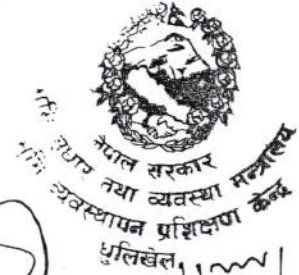 नेपाल सरकार
सुधार तथा व्यवस्था मन्त्रालय
व्यवस्थापन प्रशिक्षण केन्द्र
धुलिखेल